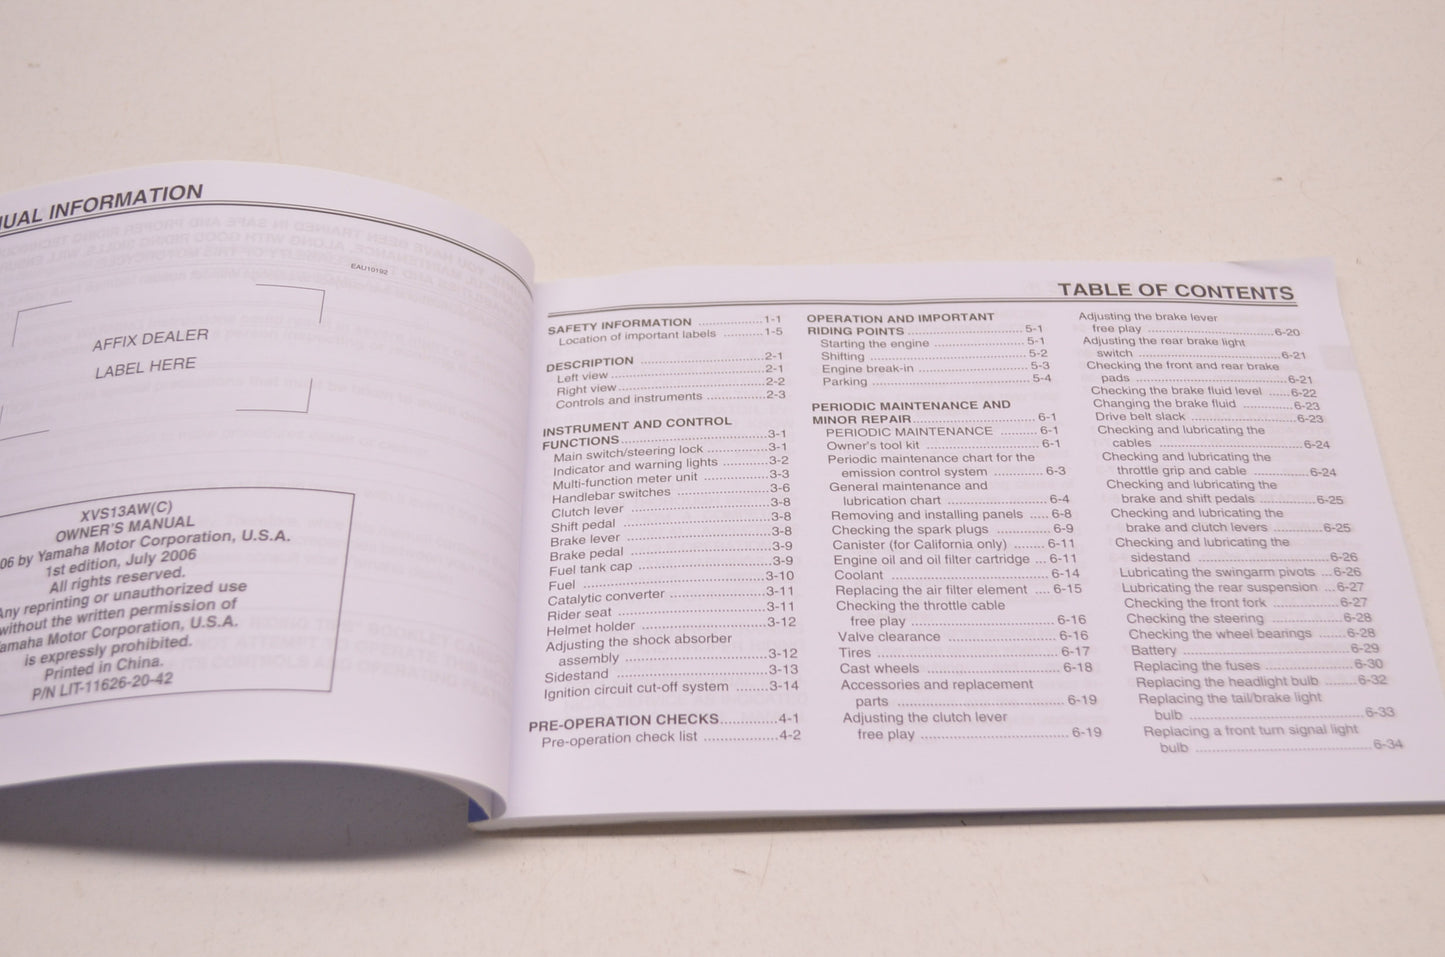 UAL INFORMATION
EAU10192
AFFIX DEALER
LABEL HERE
XVS13AW(C)
OWNER'S MANUAL
06 by Yamaha Motor Corporation, U.S.A.
1st edition, July 2006
All rights reserved.
Any reprinting or unauthorized use
without the written permission of
amaha Motor Corporation, U.S.A.
is expressly prohibited.
Printed in China.
P/N LIT-11626-20-42
TABLE OF CONTENTS
SAFETY INFORMATION ..................1-1
Location of important labels ...........1-5
DESCRIPTION ..................................2-1
Left view ..........................................2-1
Right view ........................................2-2
Controls and instruments ................2-3
INSTRUMENT AND CONTROL
FUNCTIONS......................................3-1
Main switch/steering lock ................3-1
Indicator and warning lights ............3-2
Multi-function meter unit .................3-3
Handlebar switches ........................3-6
Clutch lever .....................................3-8
Shift pedal .......................................3-8
Brake lever ......................................3-8
Brake pedal .....................................3-9
Fuel tank cap ...................................3-9
Fuel ................................................3-10
Catalytic converter .........................3-11
Rider seat ......................................3-11
Helmet holder ................................3-12
Adjusting the shock absorber
assembly ....................................3-12
Sidestand .......................................3-13
Ignition circuit cut-off system ........3-14
PRE-OPERATION CHECKS.............4-1
Pre-operation check list ..................4-2
OPERATION AND IMPORTANT
RIDING POINTS ..............................5-1
Starting the engine .........................5-1
Shifting ...........................................5-2
Engine break-in ..............................5-3
Parking ...........................................5-4
PERIODIC MAINTENANCE AND
MINOR REPAIR...............................6-1
PERIODIC MAINTENANCE ..........6-1
Owner's tool kit ...............................6-1
Periodic maintenance chart for the
emission control system .............6-3
General maintenance and
lubrication chart ..........................6-4
Removing and installing panels .....6-8
Checking the spark plugs ...............6-9
Canister (for California only) ........6-11
Engine oil and oil filter cartridge ...6-11
Coolant .........................................6-14
Replacing the air filter element ....6-15
Checking the throttle cable
free play ....................................6-16
Valve clearance ............................6-16
Tires ..............................................6-17
Cast wheels ..................................6-18
Accessories and replacement
parts ..........................................6-19
Adjusting the clutch lever
free play ....................................6-19
Adjusting the brake lever
free play ....................................6-20
Adjusting the rear brake light
switch ........................................6-21
Checking the front and rear brake
pads ..........................................6-21
Checking the brake fluid level ......6-22
Changing the brake fluid ..............6-23
Drive belt slack .............................6-23
Checking and lubricating the
cables ........................................6-24
Checking and lubricating the
throttle grip and cable ...............6-24
Checking and lubricating the
brake and shift pedals ...............6-25
Checking and lubricating the
brake and clutch levers .............6-25
Checking and lubricating the
sidestand ..................................6-26
Lubricating the swingarm pivots ...6-26
Lubricating the rear suspension ...6-27
Checking the front fork .................6-27
Checking the steering ..................6-28
Checking the wheel bearings .......6-28
Battery ..........................................6-29
Replacing the fuses ......................6-30
Replacing the headlight bulb ........6-32
Replacing the tail/brake light
bulb ...........................................6-33
Replacing a front turn signal light
bulb ...........................................6-34